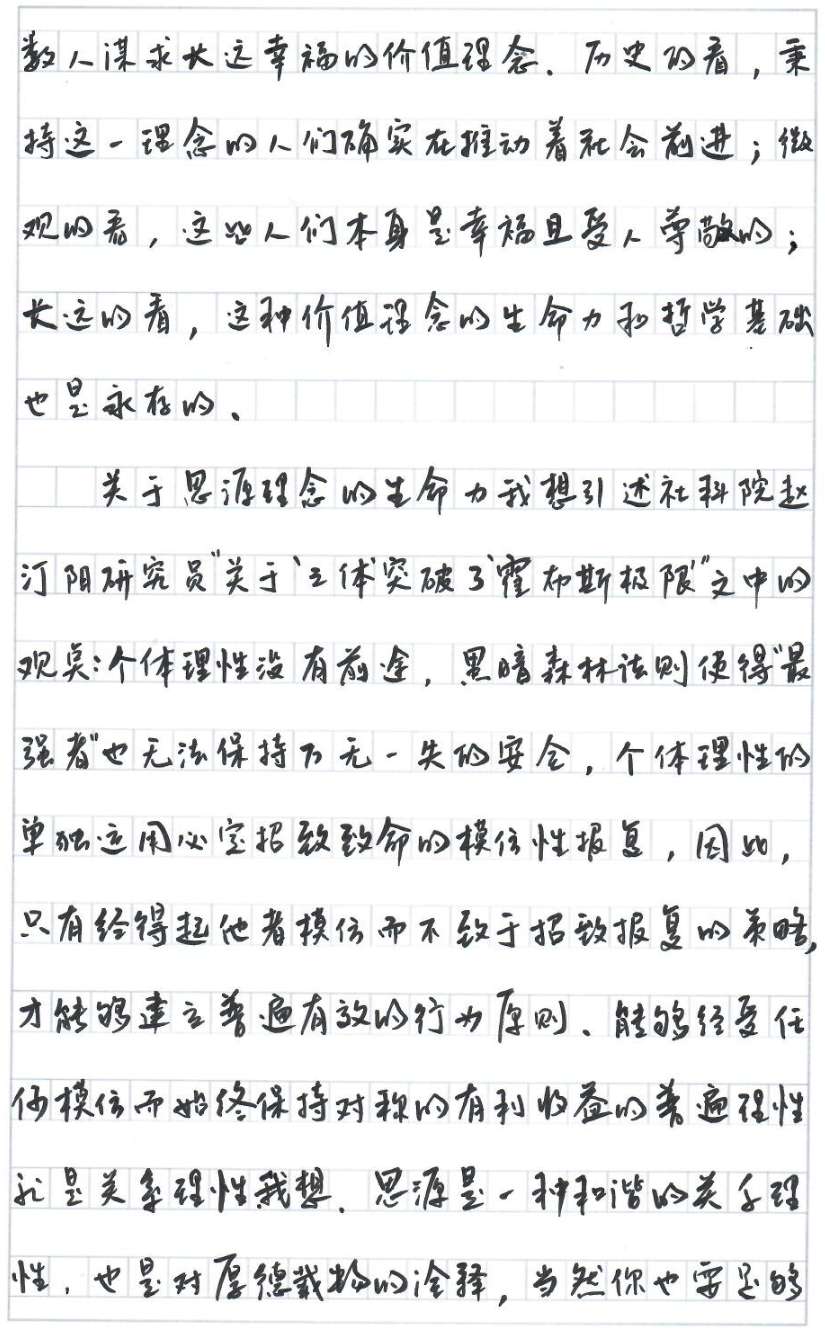 数人谋求长远幸福的价值理念．历史的看，秉
持这一理念的人们确实在推动着社会前进；微
观的看，这些人们本身是幸福且受人尊敬的；
长远的看，这种价值理念的生命力和哲学基础
也是永存的、
关于思源理念的生命力我想引述社科院赵
汀阳研究员"关于'三体'突破了'霍布斯极限'"文中的
观点：个体理性没有前途，黑暗森林法则使得"最
强者"也无法保持万无一失的安全，个体理性的
单独运用必定招致致命的模仿性报复，因此，
只有经得起他者模仿而不致于招致报复的策略，
才能够建立普遍有效的行为原则、能够经受任
何模仿而始终保持对称的有利收益的普遍理性
就是关系理性我想．思源是一种和谐的关系理
性．也是对厚德载物的诠释，当然你也要足够